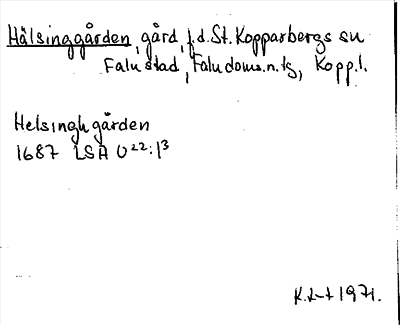 Hälsinggården, gård, f.d. St. Kopparbergs sn
Falu stad, Falu doms.n. tg, Kopp.l.
Helsingh gården
1687 LSA U22:13
1971.